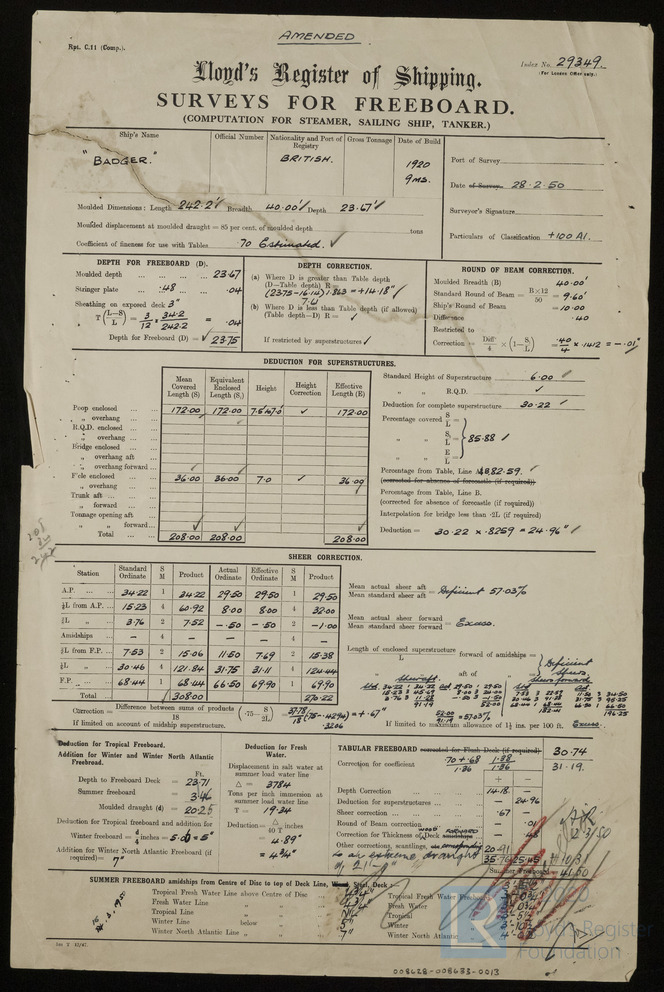 AMENDED
Rpt. C.11 (Comp.).
Index No. 29349.
(For London Office only.)
Lloyd's Register of Shipping.
SURVEYS FOR FREEBOARD.
(COMPUTATION FOR STEAMER, SAILING SHIP, TANKER.)
Ship's Name Official Number Nationality and Port of Registry Gross Tonnage Date of Build
"BADGER." BRITISH. 1920 9ms.
Port of Survey
Date of Survey 28.2.50
Surveyor's Signature
Particulars of Classification +100 A1.
Moulded Dimensions: Length 242.2' Breadth 40.00' Depth 23.67'
Moulded displacement at moulded draught = 85 per cent. of moulded depth tons
Coefficient of fineness for use with Tables .70 Estimated.
DEPTH FOR FREEBOARD (D).
Moulded depth 23.67
Stringer plate .48 .04
Sheathing on exposed deck 3"
T (L-S / L) = 3/12 × 34.2/242.2 = .04
Depth for Freeboard (D) = 23.75
DEPTH CORRECTION.
(a) Where D is greater than Table depth
(D-Table depth) R =
(23.75-16.14) 1.863 = +14.18"
7.61
(b) Where D is less than Table depth (if allowed)
(Table depth-D) R =
If restricted by superstructures
ROUND OF BEAM CORRECTION.
Moulded Breadth (B) 40.00'
Standard Round of Beam = B×12 / 50 = 9.60"
Ship's Round of Beam = 10.00
Difference .40
Restricted to
Correction = Diff / 4 × (1-S₁/L) = .40/4 × .1412 = -.01"
DEDUCTION FOR SUPERSTRUCTURES.
Mean Covered Length (S) Equivalent Enclosed Length (S₁) Height Height Correction Effective Length (E)
Poop enclosed 172.00 172.00 172.00
" overhang
R.Q.D. enclosed
" overhang
Bridge enclosed
" overhang aft
" overhang forward
F'cle enclosed 36.00 36.00 7.0 36.00
" overhang
Trunk aft
" forward
Tonnage opening aft
" " forward
Total 208.00 208.00 208.00
Standard Height of Superstructure 6.00
" " R.Q.D.
Deduction for complete superstructure 30.22
Percentage covered S/L =
" " S₁/L = 85.88
" " E/L =
Percentage from Table, Line A. 82.59.
(corrected for absence of forecastle (if required))
Percentage from Table, Line B.
(corrected for absence of forecastle (if required))
Interpolation for bridge less than .2L (if required)
Deduction = 30.22 × .8259 = 24.96"
SHEER CORRECTION.
Station Standard Ordinate S M Product Actual Ordinate Effective Ordinate S M Product
A.P. 34.22 1 34.22 29.50 29.50 1 29.50
⅙L from A.P. 15.23 4 60.92 8.00 8.00 4 32.00
⅓L " 3.76 2 7.52 -.50 -.50 2 -1.00
Amidships - 4 - - - 4 -
⅓L from F.P. 7.53 2 15.06 11.50 7.69 2 15.38
⅙L " 30.46 4 121.84 31.75 31.11 4 124.44
F.P. 68.44 1 68.44 66.50 69.90 1 69.90
Total 308.00 270.22
Mean actual sheer aft / Mean standard sheer aft = Deficient 57.03%
Mean actual sheer forward / Mean standard sheer forward = Excess.
Length of enclosed superstructure / L forward of amidships =
" " aft of " =
Deficient Sheer.
Correction = Difference between sums of products / 18 (.75 - S/2L) = 37.78/18 (.75-.4294) = +.67"
.3206
If limited on account of midship superstructure.
If limited to maximum allowance of 1½ ins. per 100 ft. Excess.
Deduction for Tropical Freeboard.
Addition for Winter and Winter North Atlantic Freeboard.
Ft.
Depth to Freeboard Deck = 23.71
Summer freeboard = 3.46
Moulded draught (d) = 20.25
Deduction for Tropical freeboard and addition for
Winter freeboard = d/4 inches = 5.06 = 5"
Addition for Winter North Atlantic Freeboard (if required) = 7"
Deduction for Fresh Water.
Displacement in salt water at summer load water line
Δ = 3784
Tons per inch immersion at summer load water line
T = 19.34
Deduction = Δ / 40 T inches
= 4.89"
= 4¾"
TABULAR FREEBOARD corrected for Flush Deck (if required) 30.74
Correction for coefficient .70+.68 / 1.36 1.38 / 1.36 31.19.
+ -
Depth Correction 14.18 -
Deduction for superstructures - 24.96
Sheer correction .67 -
Round of Beam correction - .01
Correction for Thickness of Deck amidships - .48
Other corrections, scantlings, 20.91
to an extreme draught
35.76 25.45
Summer Freeboard = 41.50
SUMMER FREEBOARD amidships from Centre of Disc to top of Deck Line, Wood, Steel, Deck
Tropical Fresh Water Line above Centre of Disc
Fresh Water Line " "
Tropical Line " "
Winter Line below "
Winter North Atlantic Line " "
Tropical Fresh Water Freeboard
Fresh Water "
Tropical "
Winter "
Winter North Atlantic "
008628-008683-0013
Lloyd's Register
Foundation